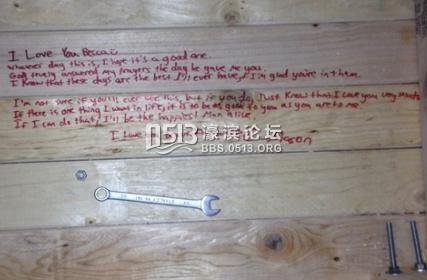 I Love You Beccai
Whatever day this is, I hope it's a good one.
God truely answered my prayers the day he gave me you.
I know that these days are the best I'll ever have, I'm glad you're in them.
I'm not sure if you'll ever see this, but if you do, Just know that I love you very much
If there is one thing I want in life, it is to be as good to you as you are to me.
If I can do that, I'll be the happiest Man alive.
I Love
0513 濠滨论坛
BBS.0513.ORG